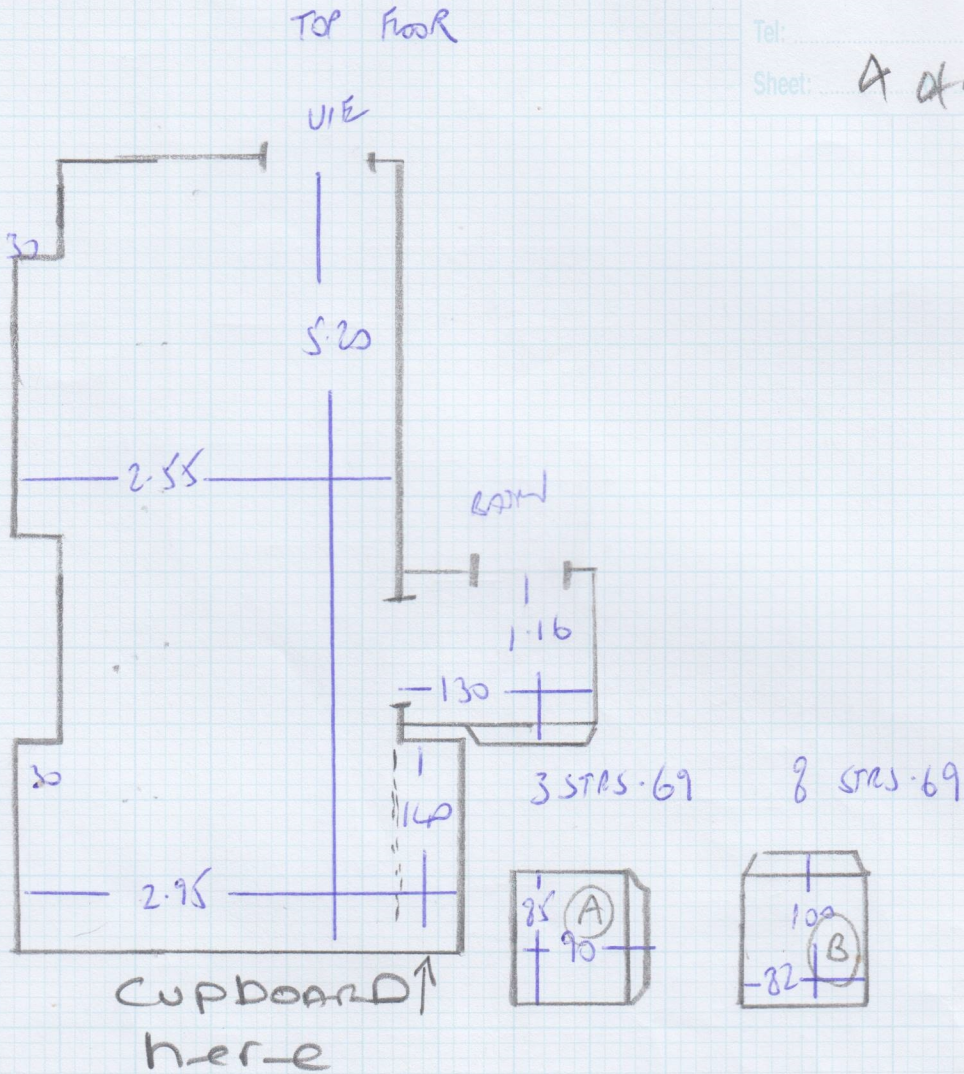 TOP FLOOR
Tel:
Sheet: 4 of
VIE
30
5.20
2.55
BATH
1.16
130
30
140
3 STRS.69
8 STRS.69
2.95
85
A
90
100
B
82
CUPBOARD
here